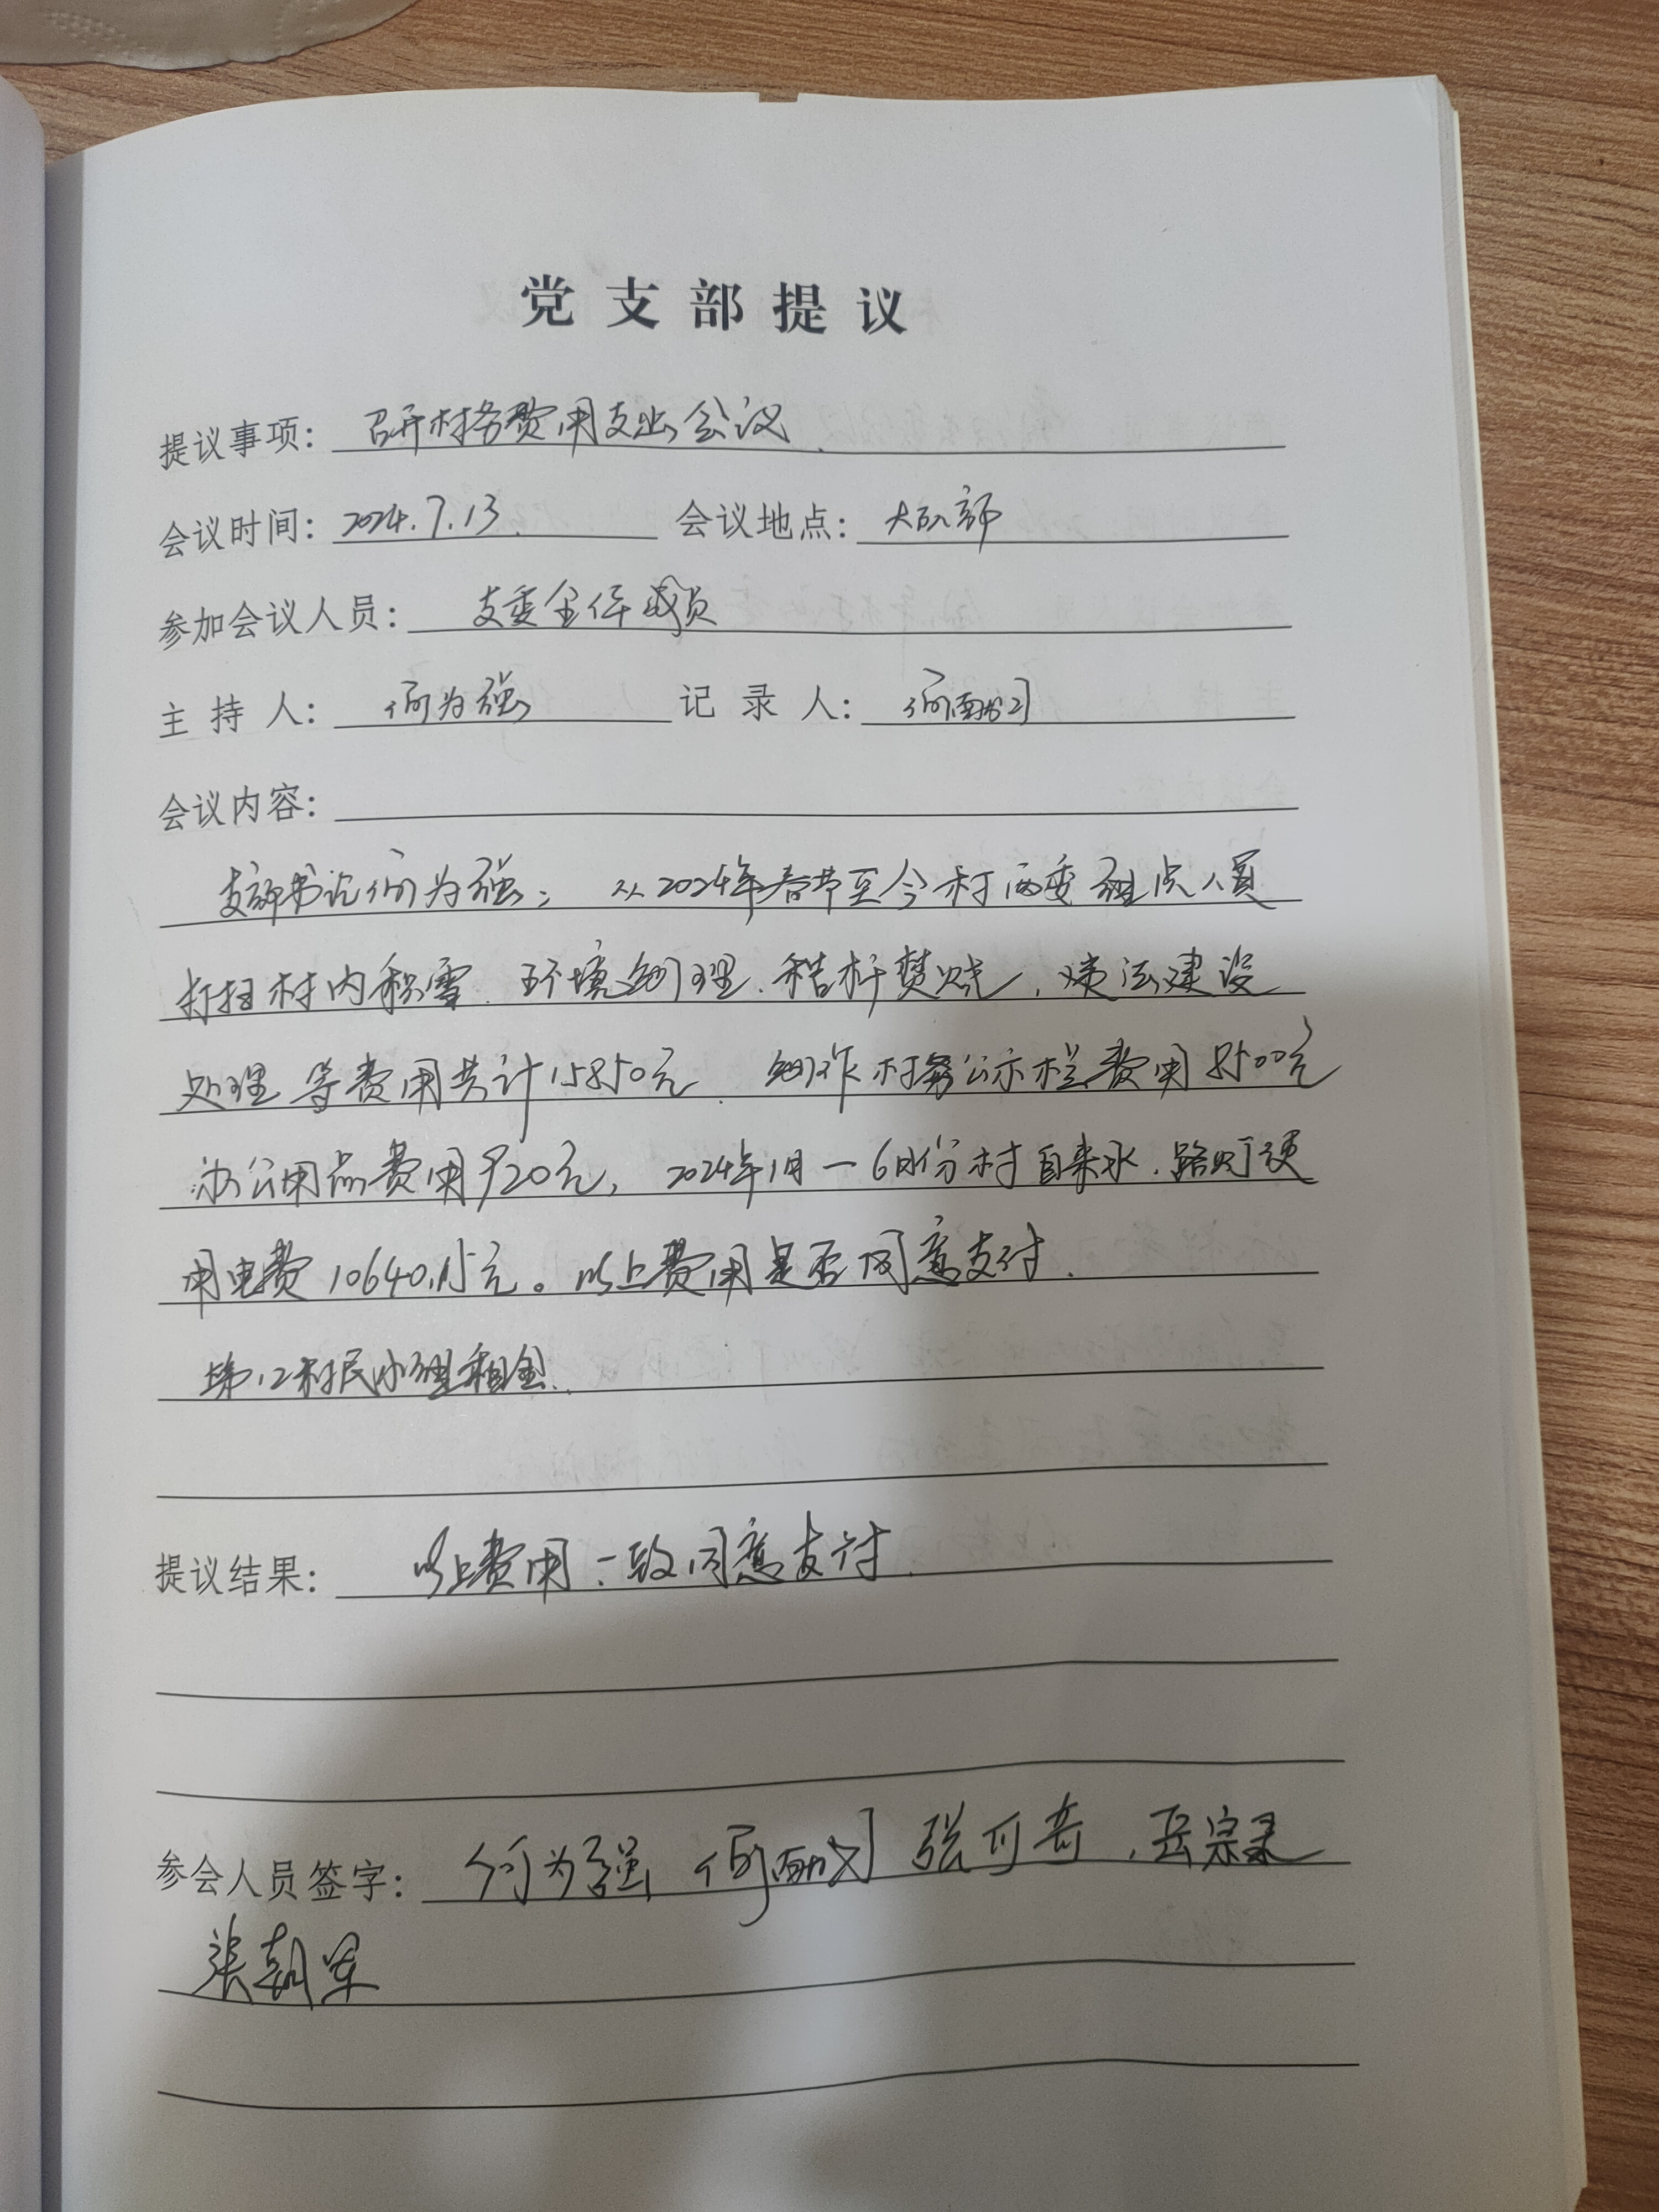 党支部提议
提议事项: 召开村务费用支出会议
会议时间: 2024.7.13. 会议地点: 大队部
参加会议人员: 支委全体成员
主持人: 何为强 记录人: 何
会议内容:
支部书记何为强: 从2024年春节至今村两委组点人员
打扫村内积雪、环境治理、秸秆焚烧、违法建设
处理等费用共计15850元、制作村务公示栏费用8500元
办公用品费用920元, 2024年1月—6月份村自来水、路灯使
用电费10640.15元。以上费用是否同意支付.
第12村民小组租金.
提议结果: 以上费用一致同意支付.
参会人员签字: 何为强 何 张可奇、岳宗录
张朝军